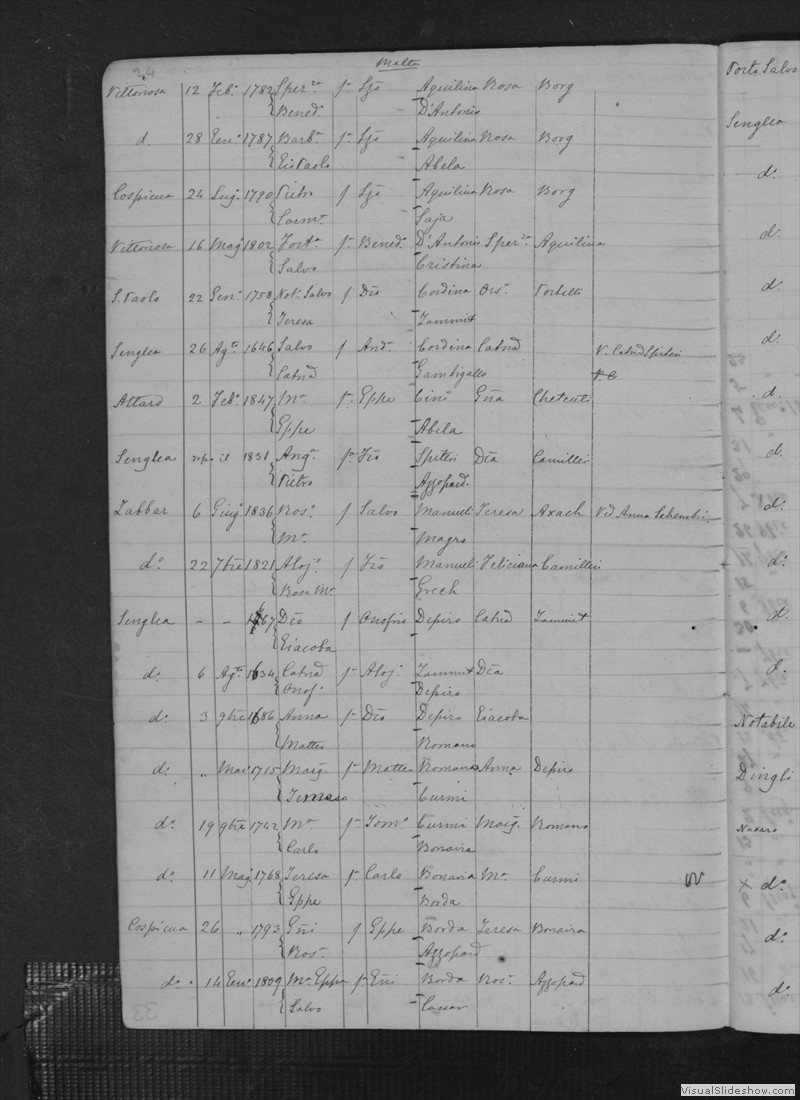 24
Malta
Vittoriosa 12 Feb. 1782 Sper.za f. Lzo Aquilina Rosa Borg
Bened. D'Antonio
d. 28 1787 Barb. f. Lzo Aquilina Rosa Borg
Abela
Cospicua 24 1790 Pietro f Lzo Aquilina Rosa Borg
Carm. Saja
Vittoriosa 16 Mag 1802 Fort. f. Bened. D'Antonio Sper.za Aquilina
Salvo Cristina
S. Paolo 22 Gen. 1758 Not. Salvo f Dco Cordina Ors. Portelli
Teresa Zammit
Senglea 26 Ag. 1646 Salvo f And. Cordina Catna
Catna
V. Catna Spiteri
Attard 2 Feb. 1847 M. f. Gppe Cini Gña Chetcuti
Gppe Abela
Senglea 1831 Ang. f. Fco Spiteri Dca Camilleri
Pietro Azzopard.
Zabbar 6 Giug 1836 Ros. f Salvo Manueli Teresa Axach Vd Anna Schembri
M. Magro
d. 22 7bre 1821 Aloj. f Fco Manueli Feliciana Camilleri
Rosa M. Grech
Senglea - - Dco f Onofrio Depiro Catna Zammit
Giacoba
d. 6 Ag. 1634 Catna f. Aloj. Zammit Dca
Onof. Depiro
d. 3 9bre 1686 Anna f. Dco Depiro Giacoba
Matteo Romano
d. " Mar 1715 Marg. f. Matteo Romano Anna Depiro
Curmi
d. 19 9bre 1742 M. f. Tom. Curmi Marg. Romano
Carlo Bonavia
d. 11 Mag 1768 Teresa f. Carlo Bonavia M. Curmi
Gppe Borda
Cospicua 26 " 1793 Gñi f Gppe Borda Teresa Bonavia
Ros. Azzopard
d. 14 1809 M. Gppa f. Gñi Borda Ros. Azzopard
Salvo Cassar
Porto Salvo
Senglea
d.
d.
d.
d.
d.
d.
d.
d.
d.
d.
Notabile
Dingli
Naxaro
x d.
d.
d.
33
VisualSlideshow.com